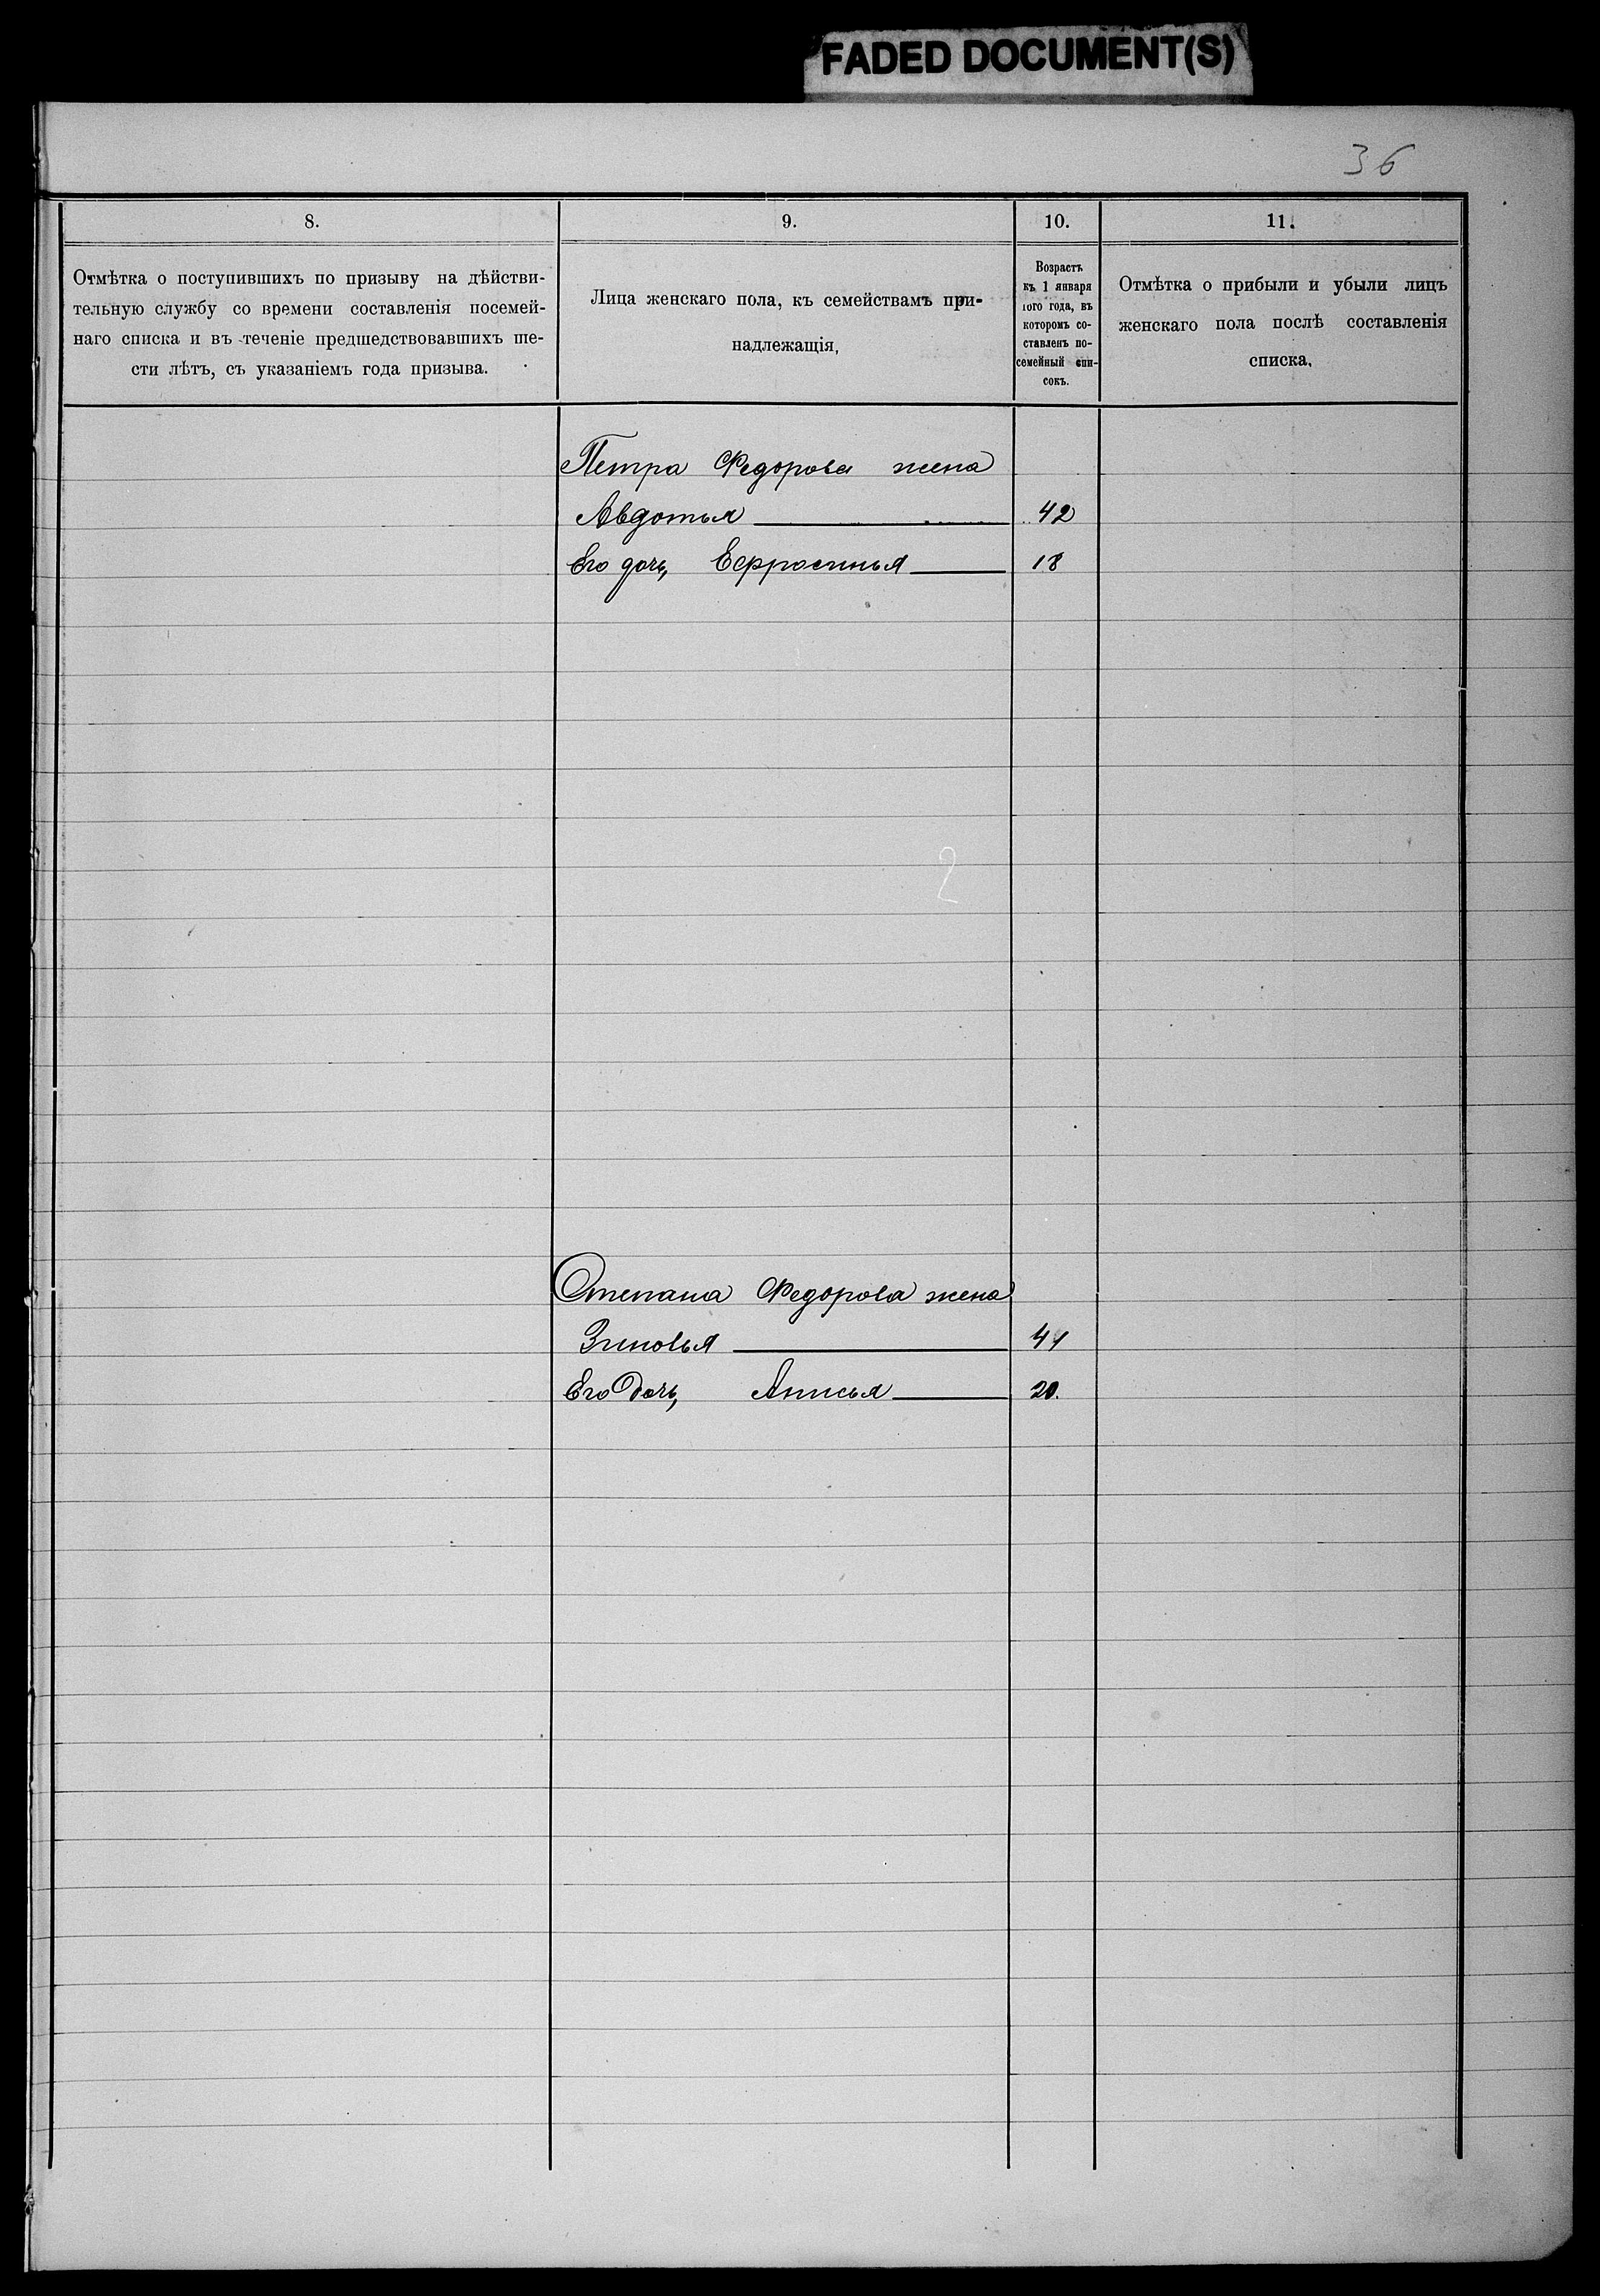 FADED DOCUMENT(S)
36
8.
9.
10.
11.
Отмѣтка о поступившихъ по призыву на дѣйстви-
тельную службу со времени составленія посемей-
наго списка и въ теченіе предшедствовавшихъ ше-
сти лѣтъ, съ указаніемъ года призыва.
Лица женскаго пола, къ семействамъ при-
надлежащія,
Возрастъ
къ 1 января
того года, въ
которомъ со-
ставленъ по-
семейный спи-
сокъ.
Отмѣтка о прибыли и убыли лицъ
женскаго пола послѣ составленія
списка.
Петра Федорова жена
Авдотья 42
Его дочь, Ефросинья 18
2
Степана Федорова жена
Зиновья 41
Его дочь, Анисья 20.